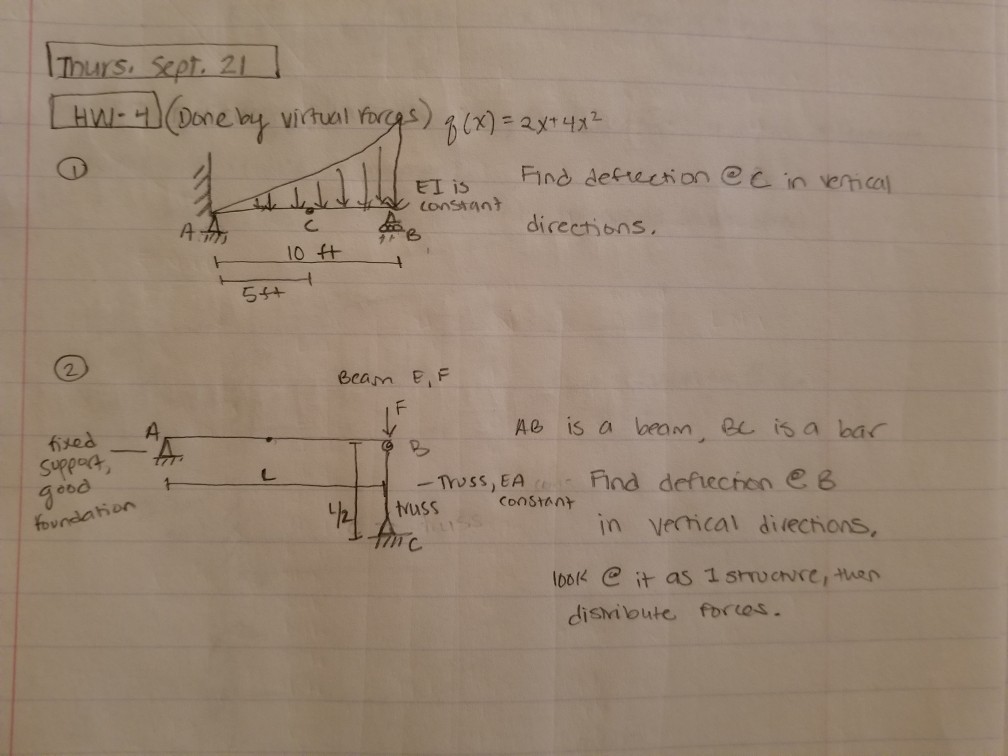 Thurs. Sept. 21
HW-4 (Done by virtual forces) q(x) = 2x+4x²
①
EI is
constant
Find deflection @ C in vertical
directions.
A
C
B
10 ft
5ft
②
Beam E, F
F
A
B
fixed
support,
good
foundation
L
L/2
truss
C
- Truss, EA
constant
AB is a beam, BC is a bar
Find deflection @ B
in vertical directions,
look @ it as 1 structure, then
distribute forces.